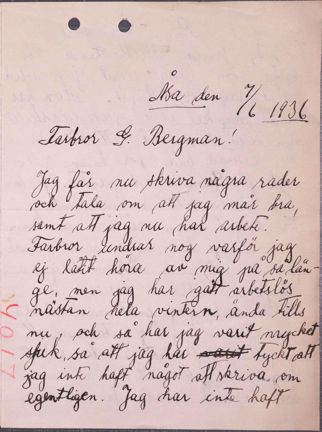 Åsa den 7/6 1936
Farbror G. Bergman!
Jag får nu skriva några rader
och tala om att jag mår bra,
samt att jag nu har arbete.
Farbror undrar nog varför jag
ej låtit höra av mig på så län-
ge, men jag har gått arbetslös
nästan hela vintern, ända tills
nu, och så har jag varit mycket
sjuk, så att jag har varit tyckt att
jag inte haft något att skriva om
egentligen. Jag har inte haft
4017